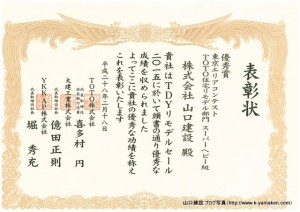 表彰状
優秀賞
東京エリアコンテスト
TOTO住宅リモデル部門 スーパーヘビー級
株式会社 山口建設 殿
貴社はTDYリモデルセール
二〇一五において頭書の通り優秀な
成績を収められました
よってここに貴社の優秀な功績を称え
これを表彰します
平成二十八年二月十八日
TOTO株式会社
喜多村 円
大建工業株式会社
億田正則
YKK AP株式会社
堀 秀充
山口建設ブログ写真(http://www.k-yamaken.com)